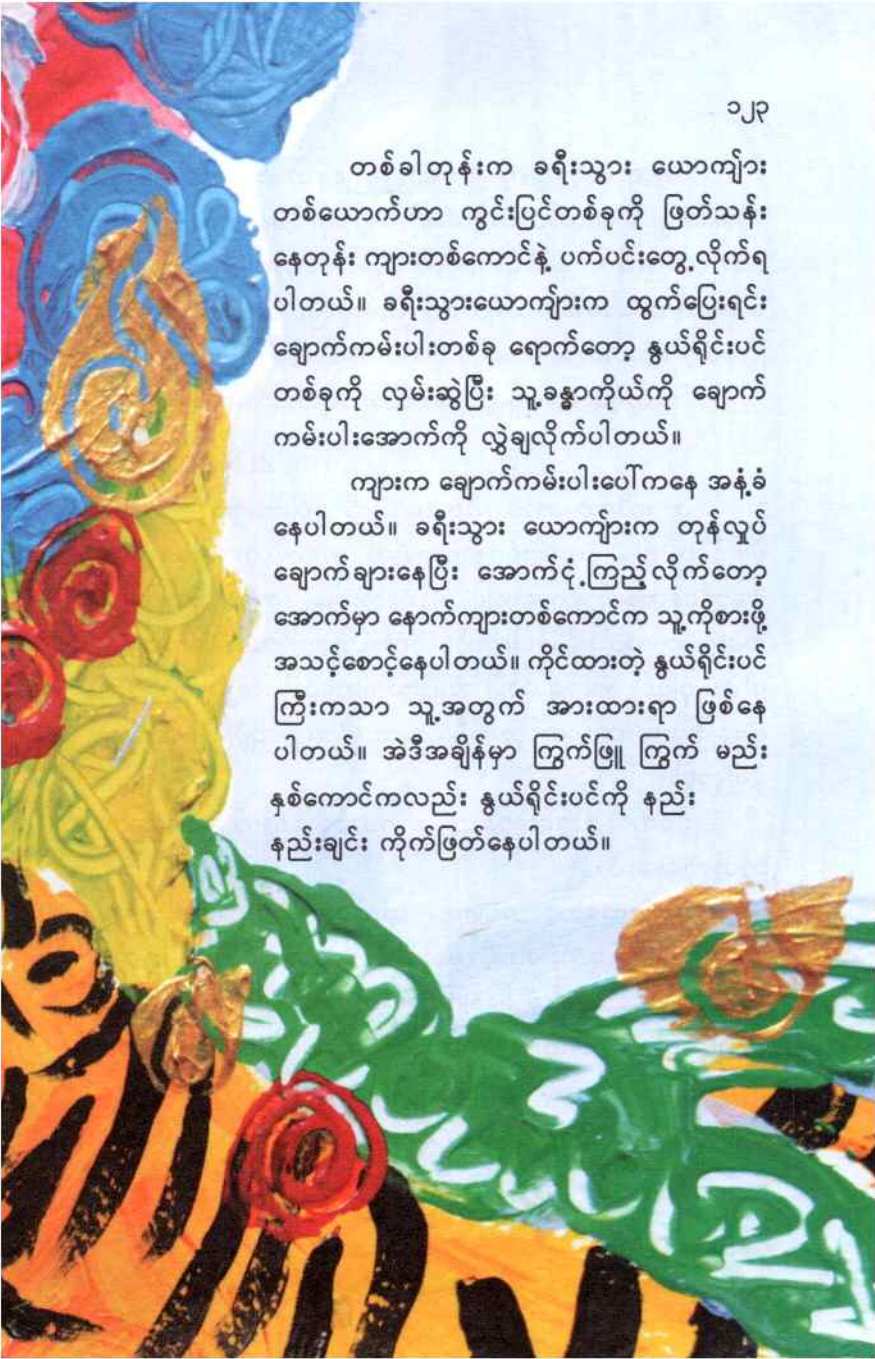 ၁၂၃
တစ်ခါတုန်းက ခရီးသွား ယောကျ်ား
တစ်ယောက်ဟာ ကွင်းပြင်တစ်ခုကို ဖြတ်သန်း
နေတုန်း ကျားတစ်ကောင်နဲ့ ပက်ပင်းတွေ့လိုက်ရ
ပါတယ်။ ခရီးသွားယောကျ်ားက ထွက်ပြေးရင်း
ချောက်ကမ်းပါးတစ်ခု ရောက်တော့ နွယ်ရိုင်းပင်
တစ်ခုကို လှမ်းဆွဲပြီး သူ့ခန္ဓာကိုယ်ကို ချောက်
ကမ်းပါးအောက်ကို လွှဲချလိုက်ပါတယ်။
ကျားက ချောက်ကမ်းပါးပေါ်ကနေ အနံ့ခံ
နေပါတယ်။ ခရီးသွား ယောကျ်ားက တုန်လှုပ်
ချောက်ချားနေပြီး အောက်ငုံ့ကြည့်လိုက်တော့
အောက်မှာ နောက်ကျားတစ်ကောင်က သူ့ကိုစားဖို့
အသင့်စောင့်နေပါတယ်။ ကိုင်ထားတဲ့ နွယ်ရိုင်းပင်
ကြီးကသာ သူ့အတွက် အားထားရာ ဖြစ်နေ
ပါတယ်။ အဲဒီအချိန်မှာ ကြွက်ဖြူ ကြွက် မည်း
နှစ်ကောင်ကလည်း နွယ်ရိုင်းပင်ကို နည်း
နည်းချင်း ကိုက်ဖြတ်နေပါတယ်။